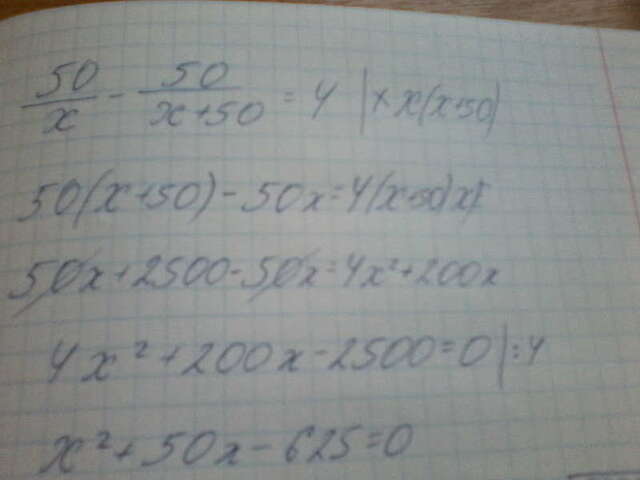 50/x - 50/x+50 = 4 | × x(x+50)
50(x+50) - 50x = 4(x+50)x
50x + 2500 - 50x = 4x² + 200x
4x² + 200x - 2500 = 0 | :4
x² + 50x - 625 = 0